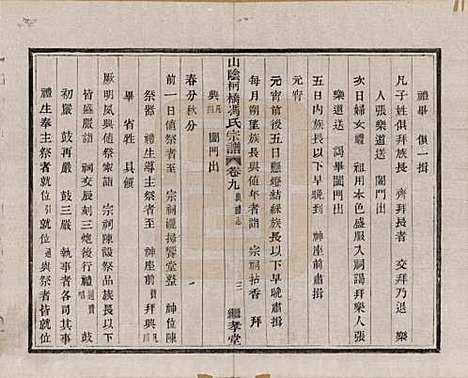 禮畢 俱一揖
凡子姓俱拜族長 齊拜長者 交拜乃退 樂
人張樂道送 闔門出
次日婦女用本色盛服入祠謁拜樂人張
樂道送 謁畢闔門出
五日內族長以下早晚詣 神座前肅揖
元宵
元宵前後五日懸燈結綵族長以下肅揖
每月朔望族長與值年者詣 宗祠拈香 拜
興 凡四 闔門出
山陰柯橋馮氏宗譜 卷九 典禮志 三 繼孝堂
春分秋分
前一日值祭者至 宗祠禮掃饗堂整 神位陳
祭器 禮生導主祭者至 神座前 贊 拜興 凡四
畢 省牲 具饌
厥明風興值祭者詣 宗祠陳饌祭品族長以下
皆盛服詣 祠交辰刻三炮後行禮 通贊 鼓
初嚴 鼓再嚴 鼓三嚴 執事者各司其事
禮生奉主祭者就位 通贊 與祭者皆就位